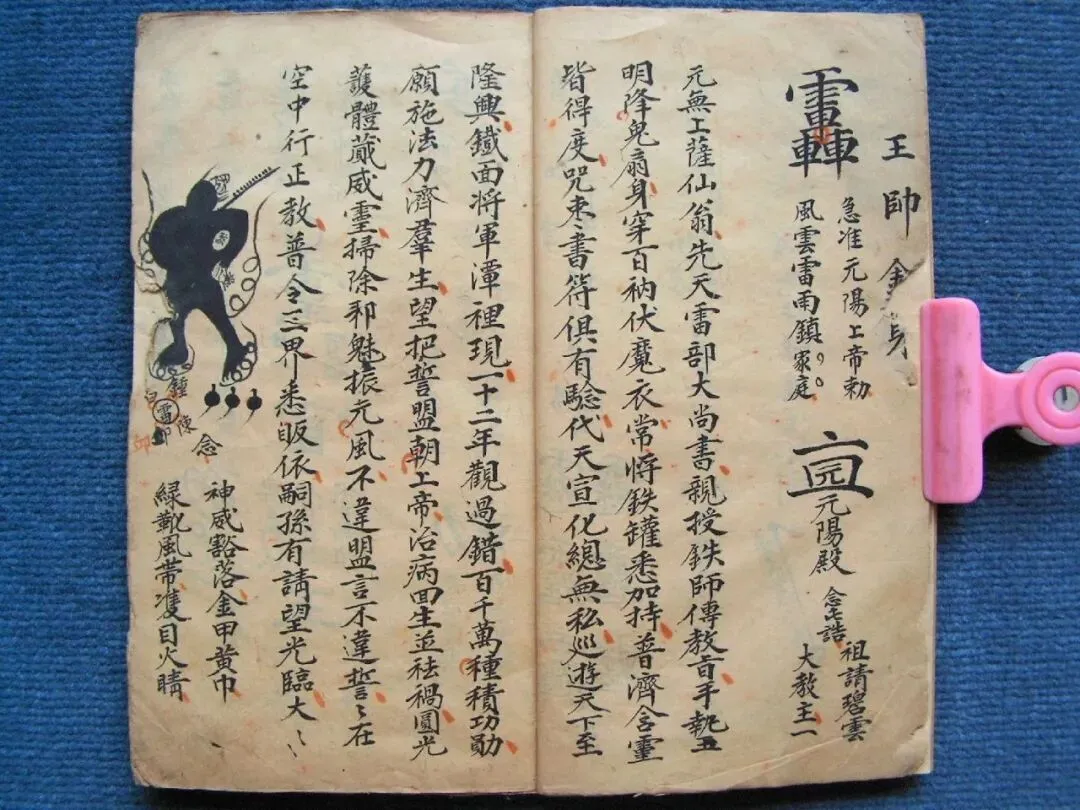 王帥
急准元陽上帝勅
風雲雷雨鎮家庭
元陽殿
念七誥
祖請碧雲
大教主一
元無上薩仙翁先天雷部大尚書親授鉄師傳教旨手執五
明降鬼扇身穿百衲伏魔衣常將鉄罐悉加持普濟含靈
皆得度咒朿書符俱有驗代天宣化總無私巡遊天下至
隆興鐵面將軍潭裡現一十二年觀過錯百千萬種積功勛
願施法力濟羣生望把誓盟朝上帝治病回生並祛禍圓光
護體藏威靈掃除邪魅振元風不違盟言不違誓〻在
空中行正教普令三界悉皈依嗣孫有請望光臨大〻
鍾
雷
陳
念
神威豁落金甲黃巾
綠靴風帶雙目火睛